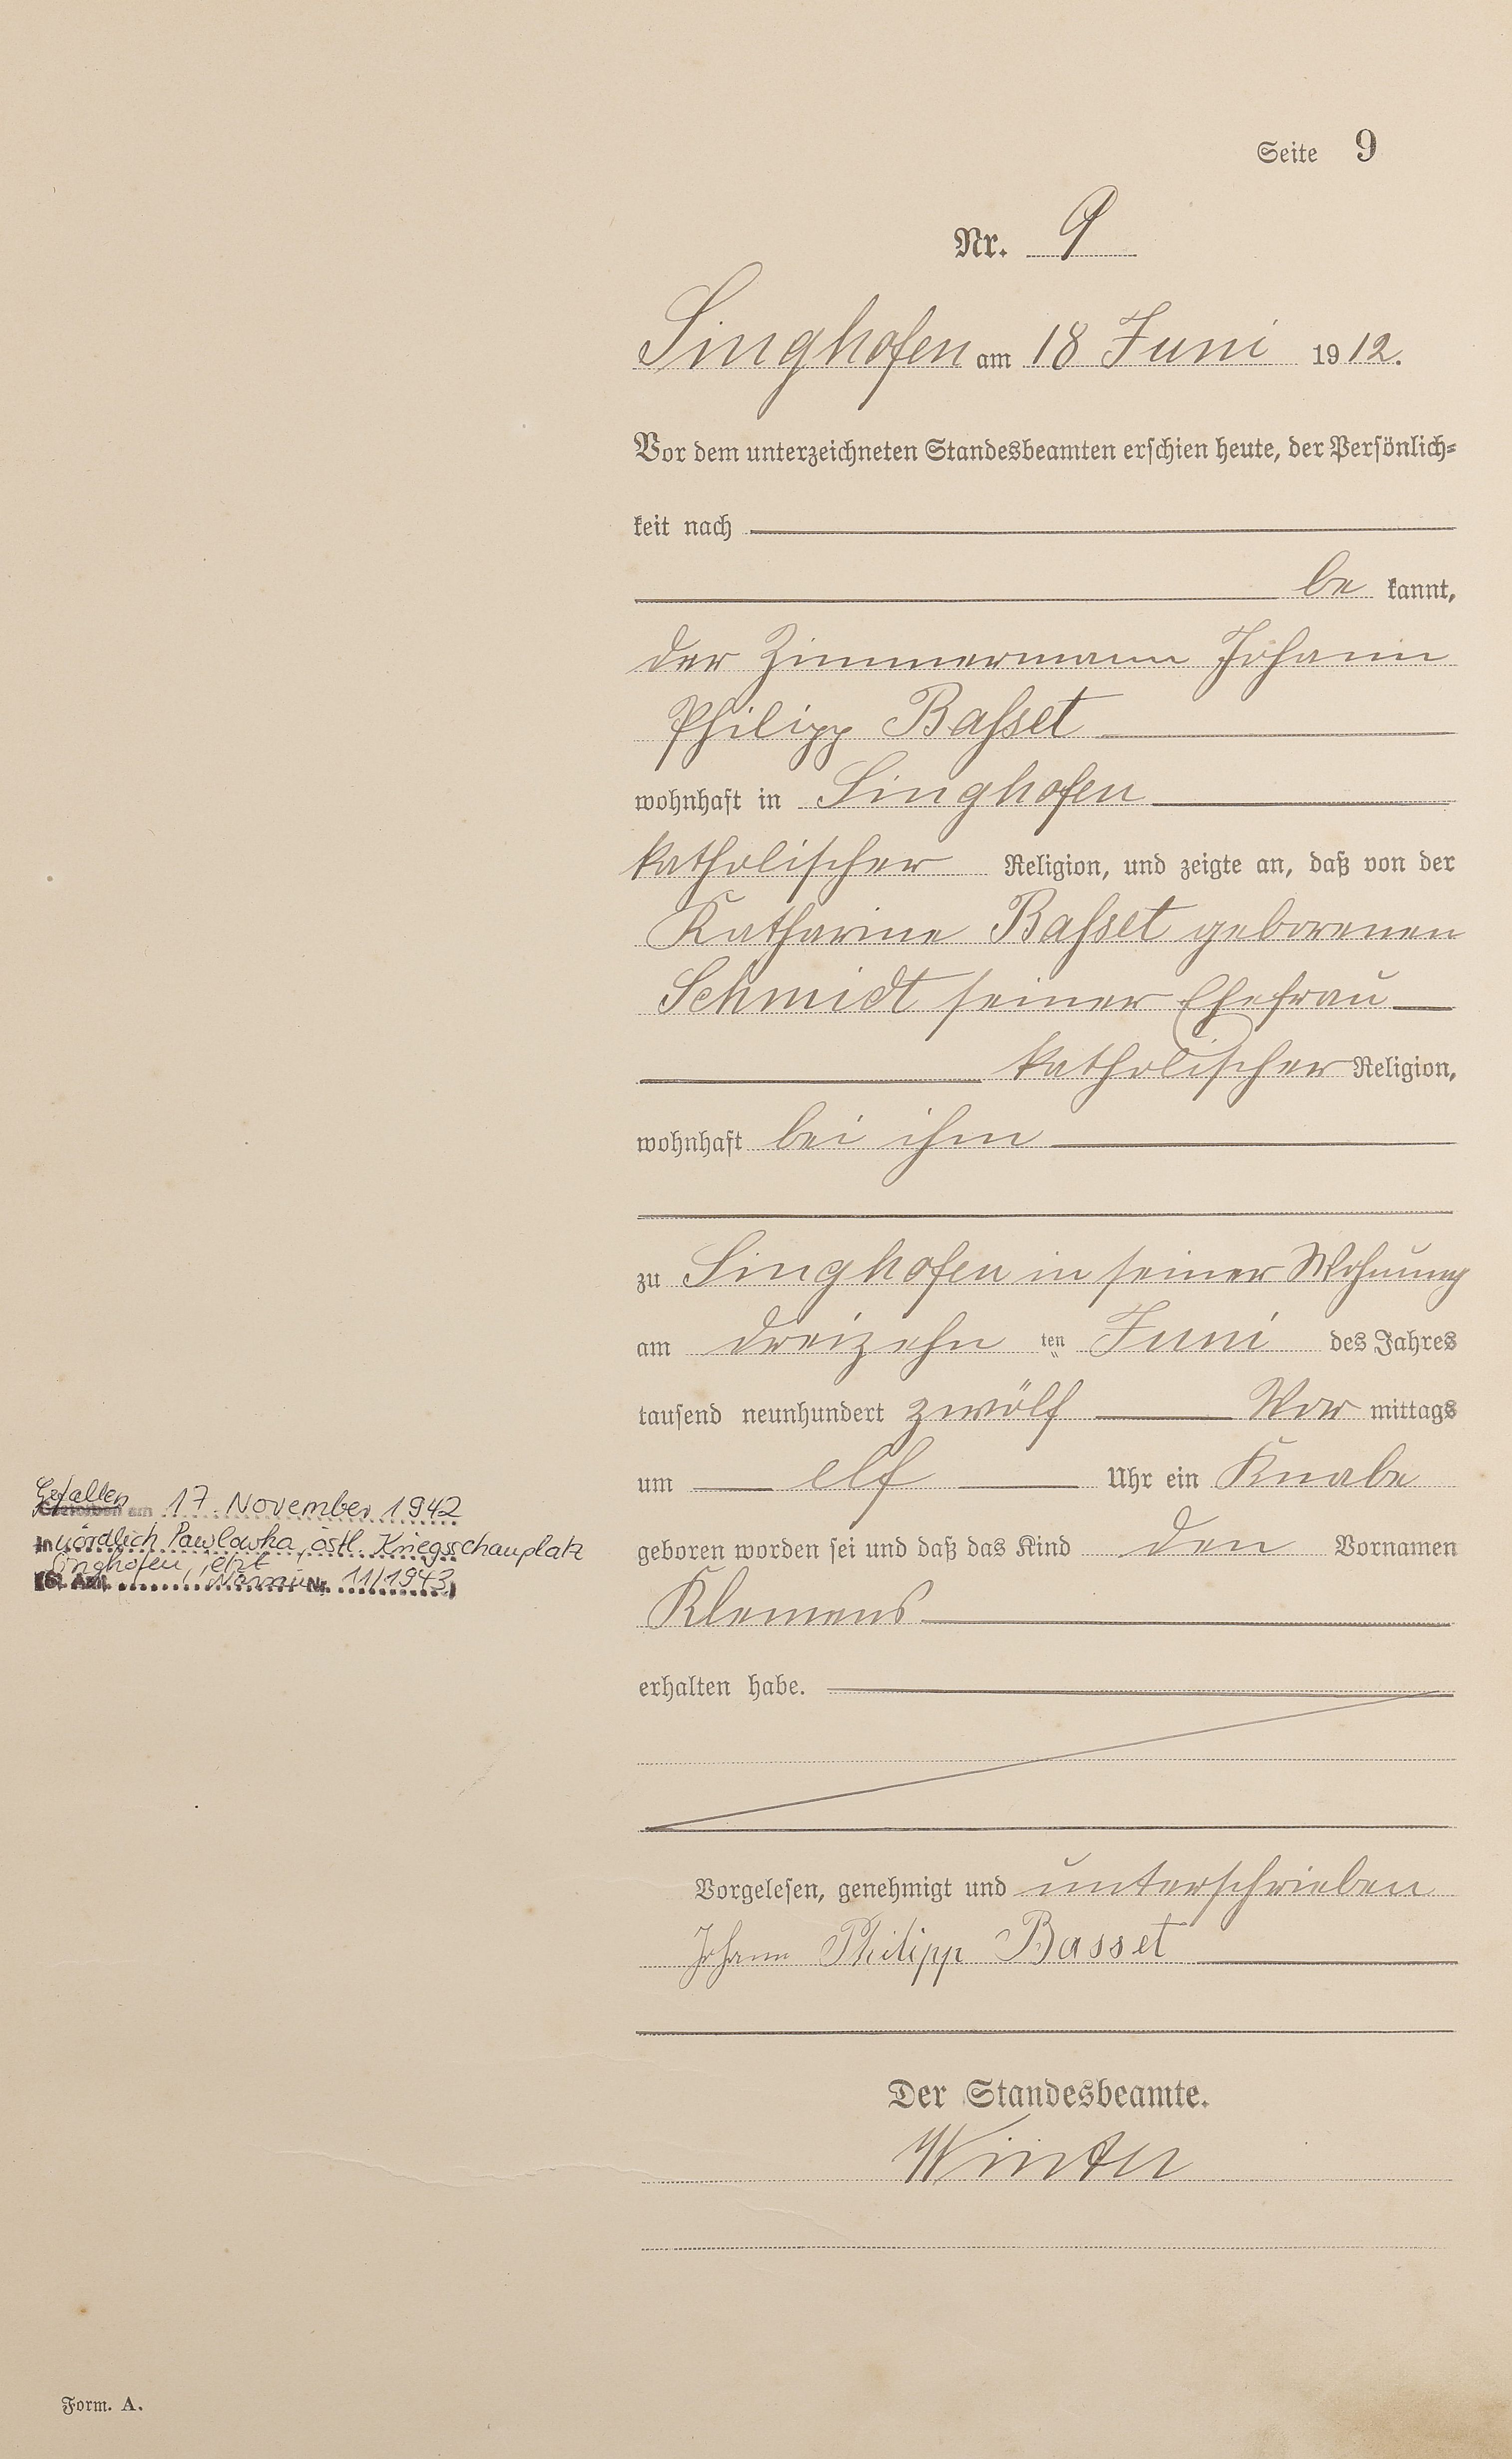 Seite 9
Nr. 9
Singhofen am 18 Juni 1912.
Vor dem unterzeichneten Standesbeamten erschien heute, der Persönlich-
keit nach
be kannt,
der Zimmermann Johann
Philipp Basset
wohnhaft in Singhofen
katholischer Religion, und zeigte an, daß von der
Katharine Basset geborenen
Schmidt seiner Ehefrau
katholischer Religion,
wohnhaft bei ihm
zu Singhofen in seiner Wohnung
am dreizehn ten Juni des Jahres
tausend neunhundert zwölf Vor mittags
um elf Uhr ein Knabe
geboren worden sei und daß das Kind den Vornamen
Klemens
erhalten habe.
Vorgelesen, genehmigt und unterschrieben
Johann Philipp Basset
Der Standesbeamte.
Winter
Gefallen
Gestorben am 17. November 1942
In nördlich Pawlowka, östl. Kriegsschauplatz
Singhofen, jetzt
(St. Amt Nassau Nr. 11/1943)
Form. A.